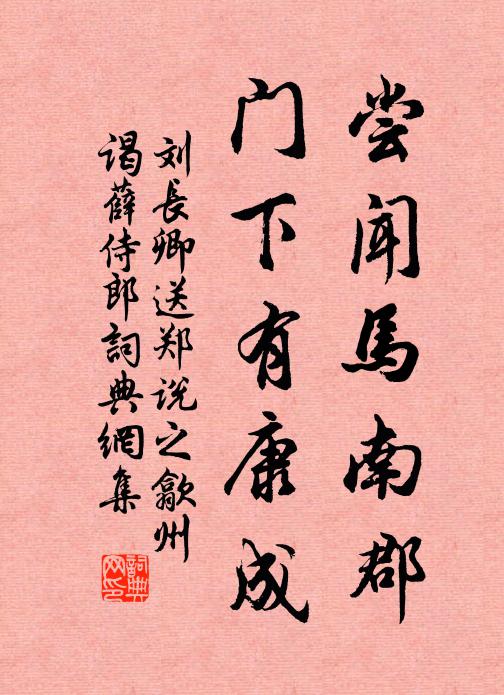 尝闻馬南郡
门下有康成
刘長卿送郑说之歙州
谒薛侍郎詞典網集
詞典
网印